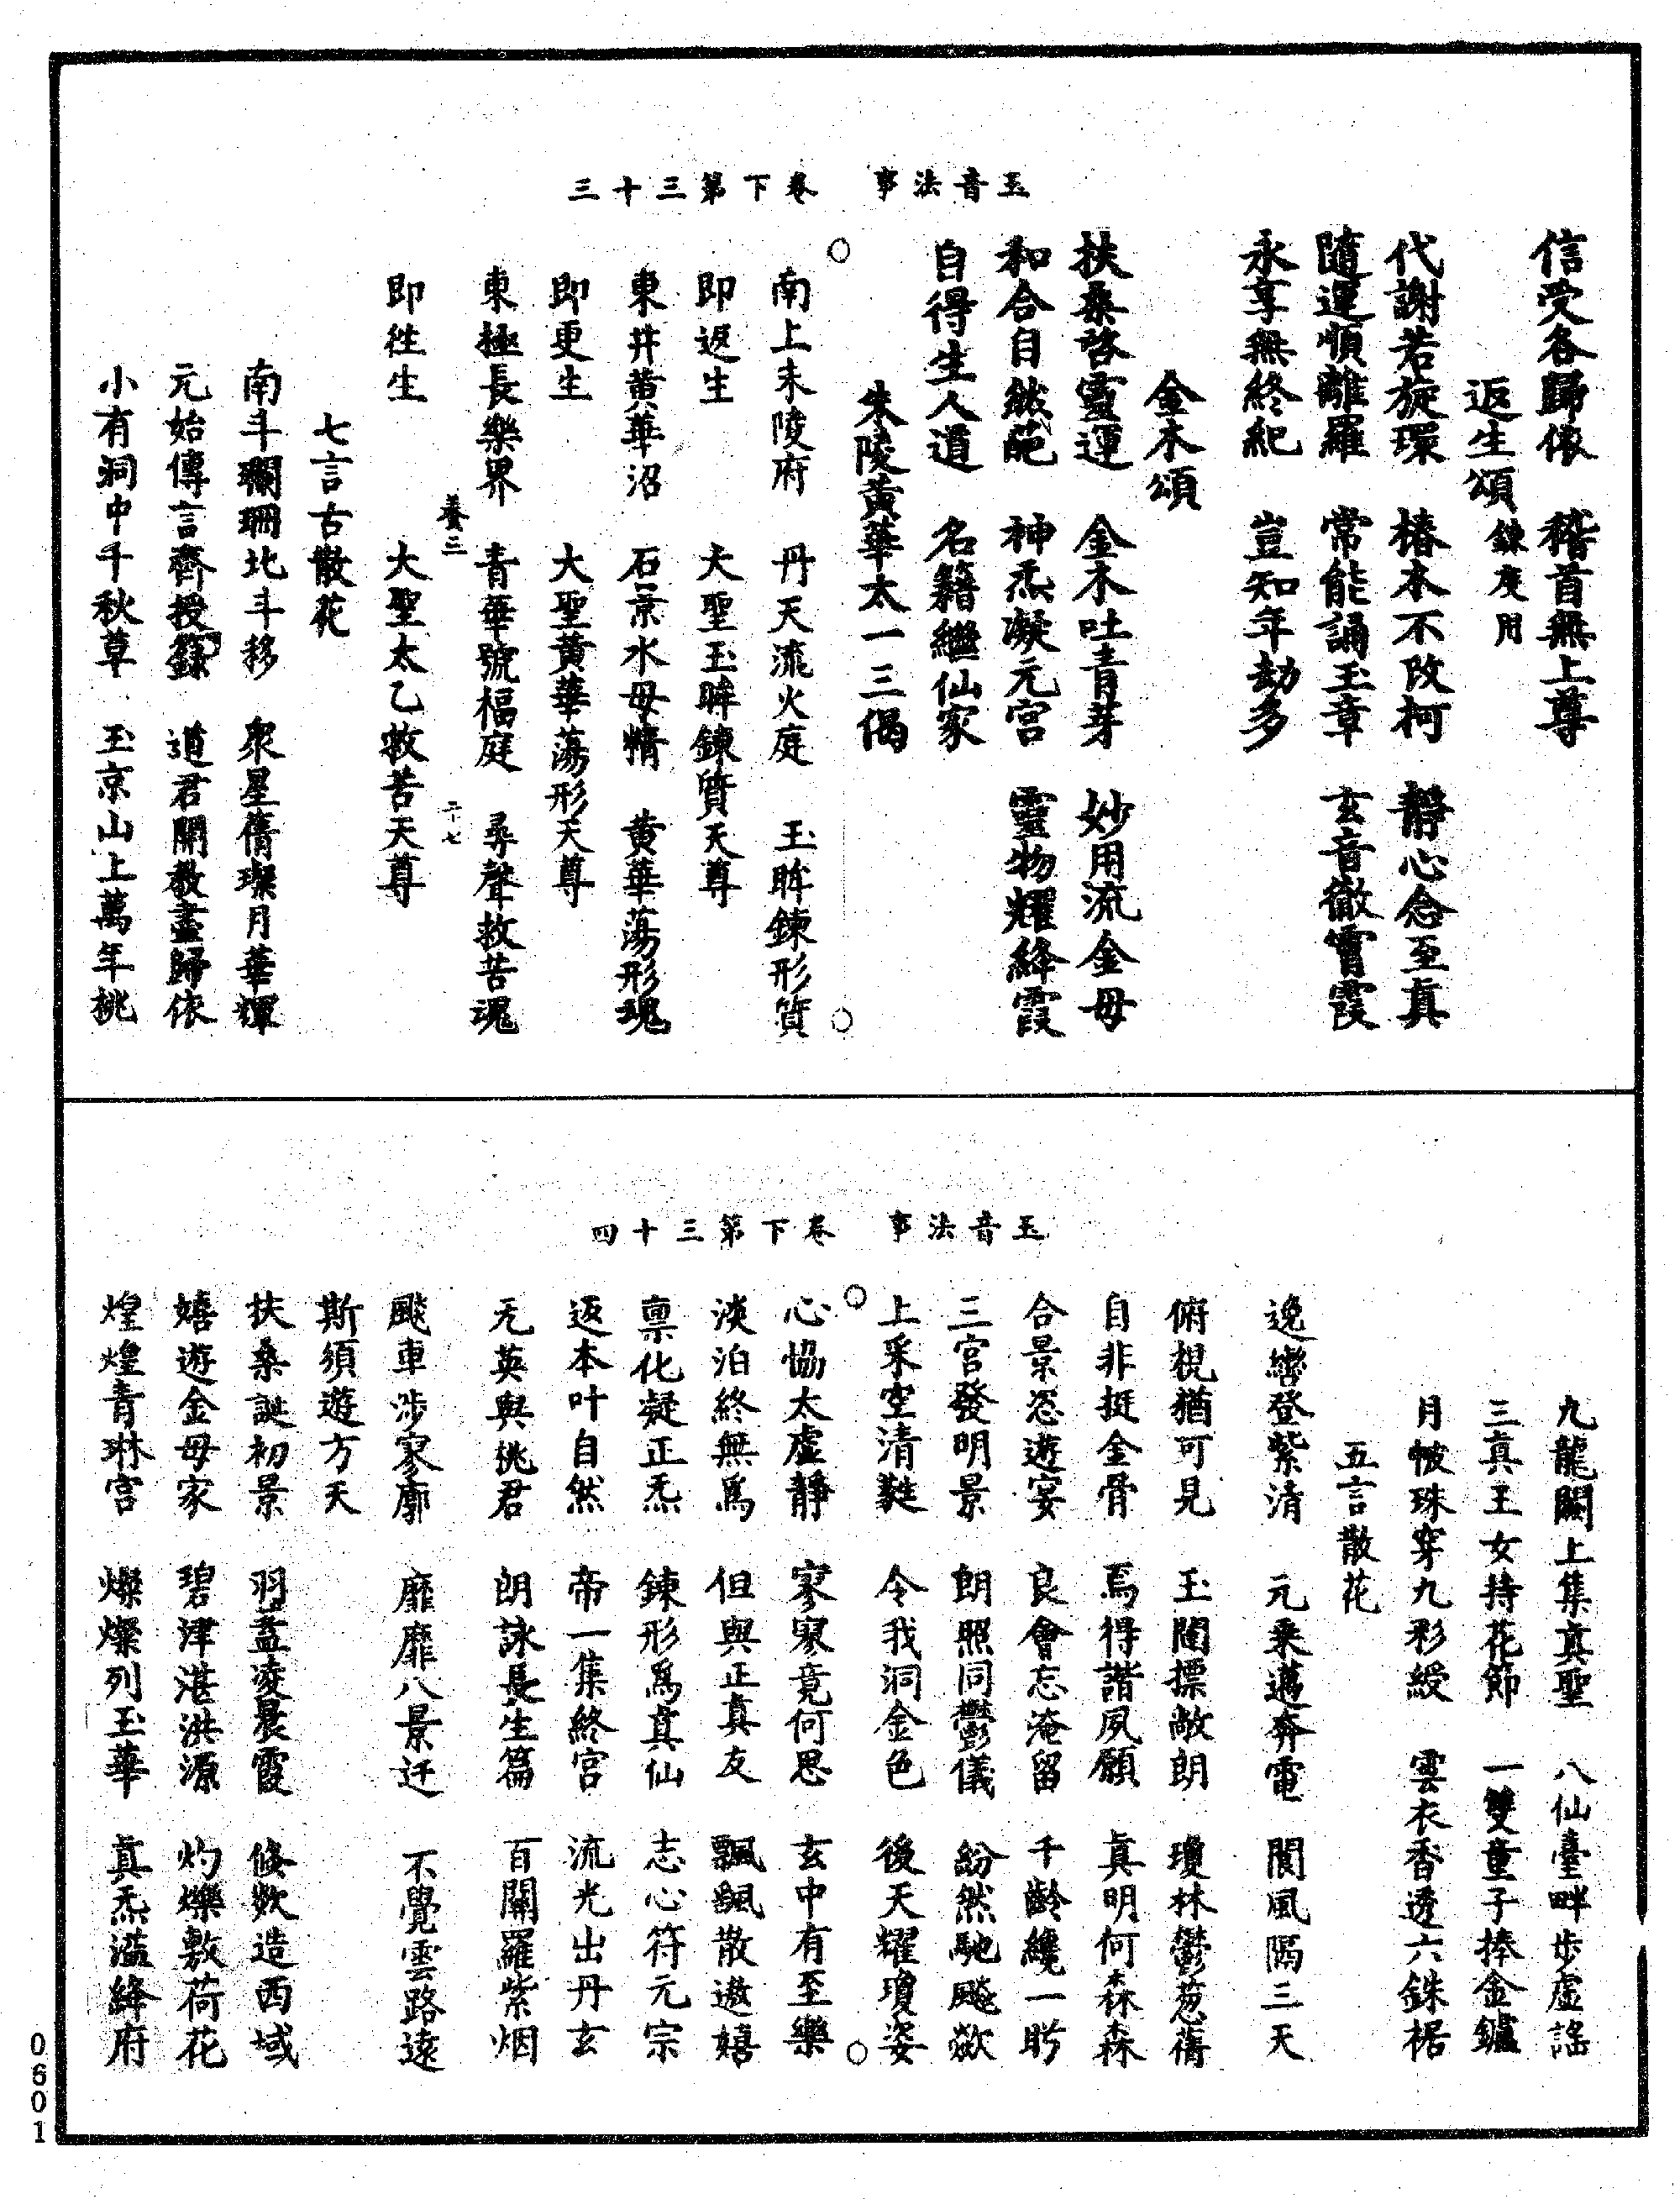 玉音法事　卷下第三十三
信受各歸依　稽首無上尊
返生頌鍊度用
代謝若旋環　椿本不改柯　靜心念至真
隨運順離羅　常能誦玉章　玄音徹霄霞
永享無終紀　豈知年劫多
金木頌
扶桑啓靈運　金木吐青芽　妙用流金母
和合自然葩　神炁凝元宮　靈物耀絳霞
自得生人道　名籍繼仙家
朱陵黃華太一三偈
南上朱陵府　丹天流火庭　玉眸鍊形質
即返生　大聖玉眸鍊質天尊
東井黃華沼　石景水母精　黃華蕩形魂
即更生　大聖黃華蕩形天尊
東極長樂界　青華號福庭　尋聲救苦魂
養三　二十七
即往生　大聖太乙救苦天尊
七言古散花
南斗斕珊北斗移　衆星蒨璨月華輝
元始傳言齊授籙　道君開教盡歸依
小有洞中千秋草　玉京山上萬年桃
玉音法事　卷下第三十四
九龍闕上集真聖　八仙臺畔步虛謠
三真王女持花節　一雙童子捧金鑪
月帔珠穿九彩綬　雲衣香透六銖裾
五言散花
逸轡登紫清　元乘邁奔電　閬風隔三天
俯視猶可見　玉闥摽敞朗　瓊林鬱葱蒨
自非挺金骨　焉得諧夙願　真明何森森
合景恣遊宴　良會忘淹留　千齡纔一眄
三宮發明景　朗照同鬱儀　紛然馳飈歘
上采空清蕤　令我洞金色　後天耀瓊姿
心協太虛靜　寥寥竟何思　玄中有至樂
淡泊終無爲　但與正真友　飄飄散遨嬉
稟化凝正炁　鍊形爲真仙　志心符元宗
返本叶自然　帝一集終宮　流光出丹玄
无英與桃君　朗詠長生篇　百關羅紫烟
飈車涉寥廓　靡靡八景迁　不覺雲路遠
斯須遊方天
扶桑誕初景　羽蓋凌晨霞　倏歘造西域
嬉遊金母家　碧津湛洪源　灼爍敷荷花
煌煌青琳宮　燦燦列玉華　真炁溢絳府
0601